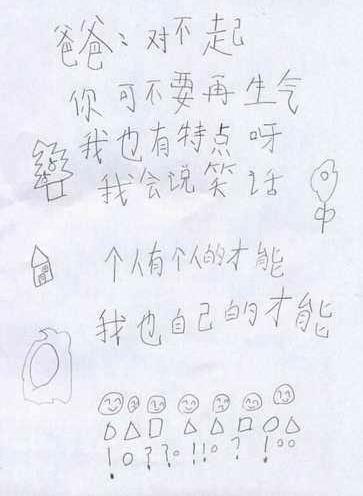 爸爸：对不起
你可不要再生气
我也有特点呀
我会说笑话
个人有个人的才能
我也自己的才能
!o??o!!o?!oo